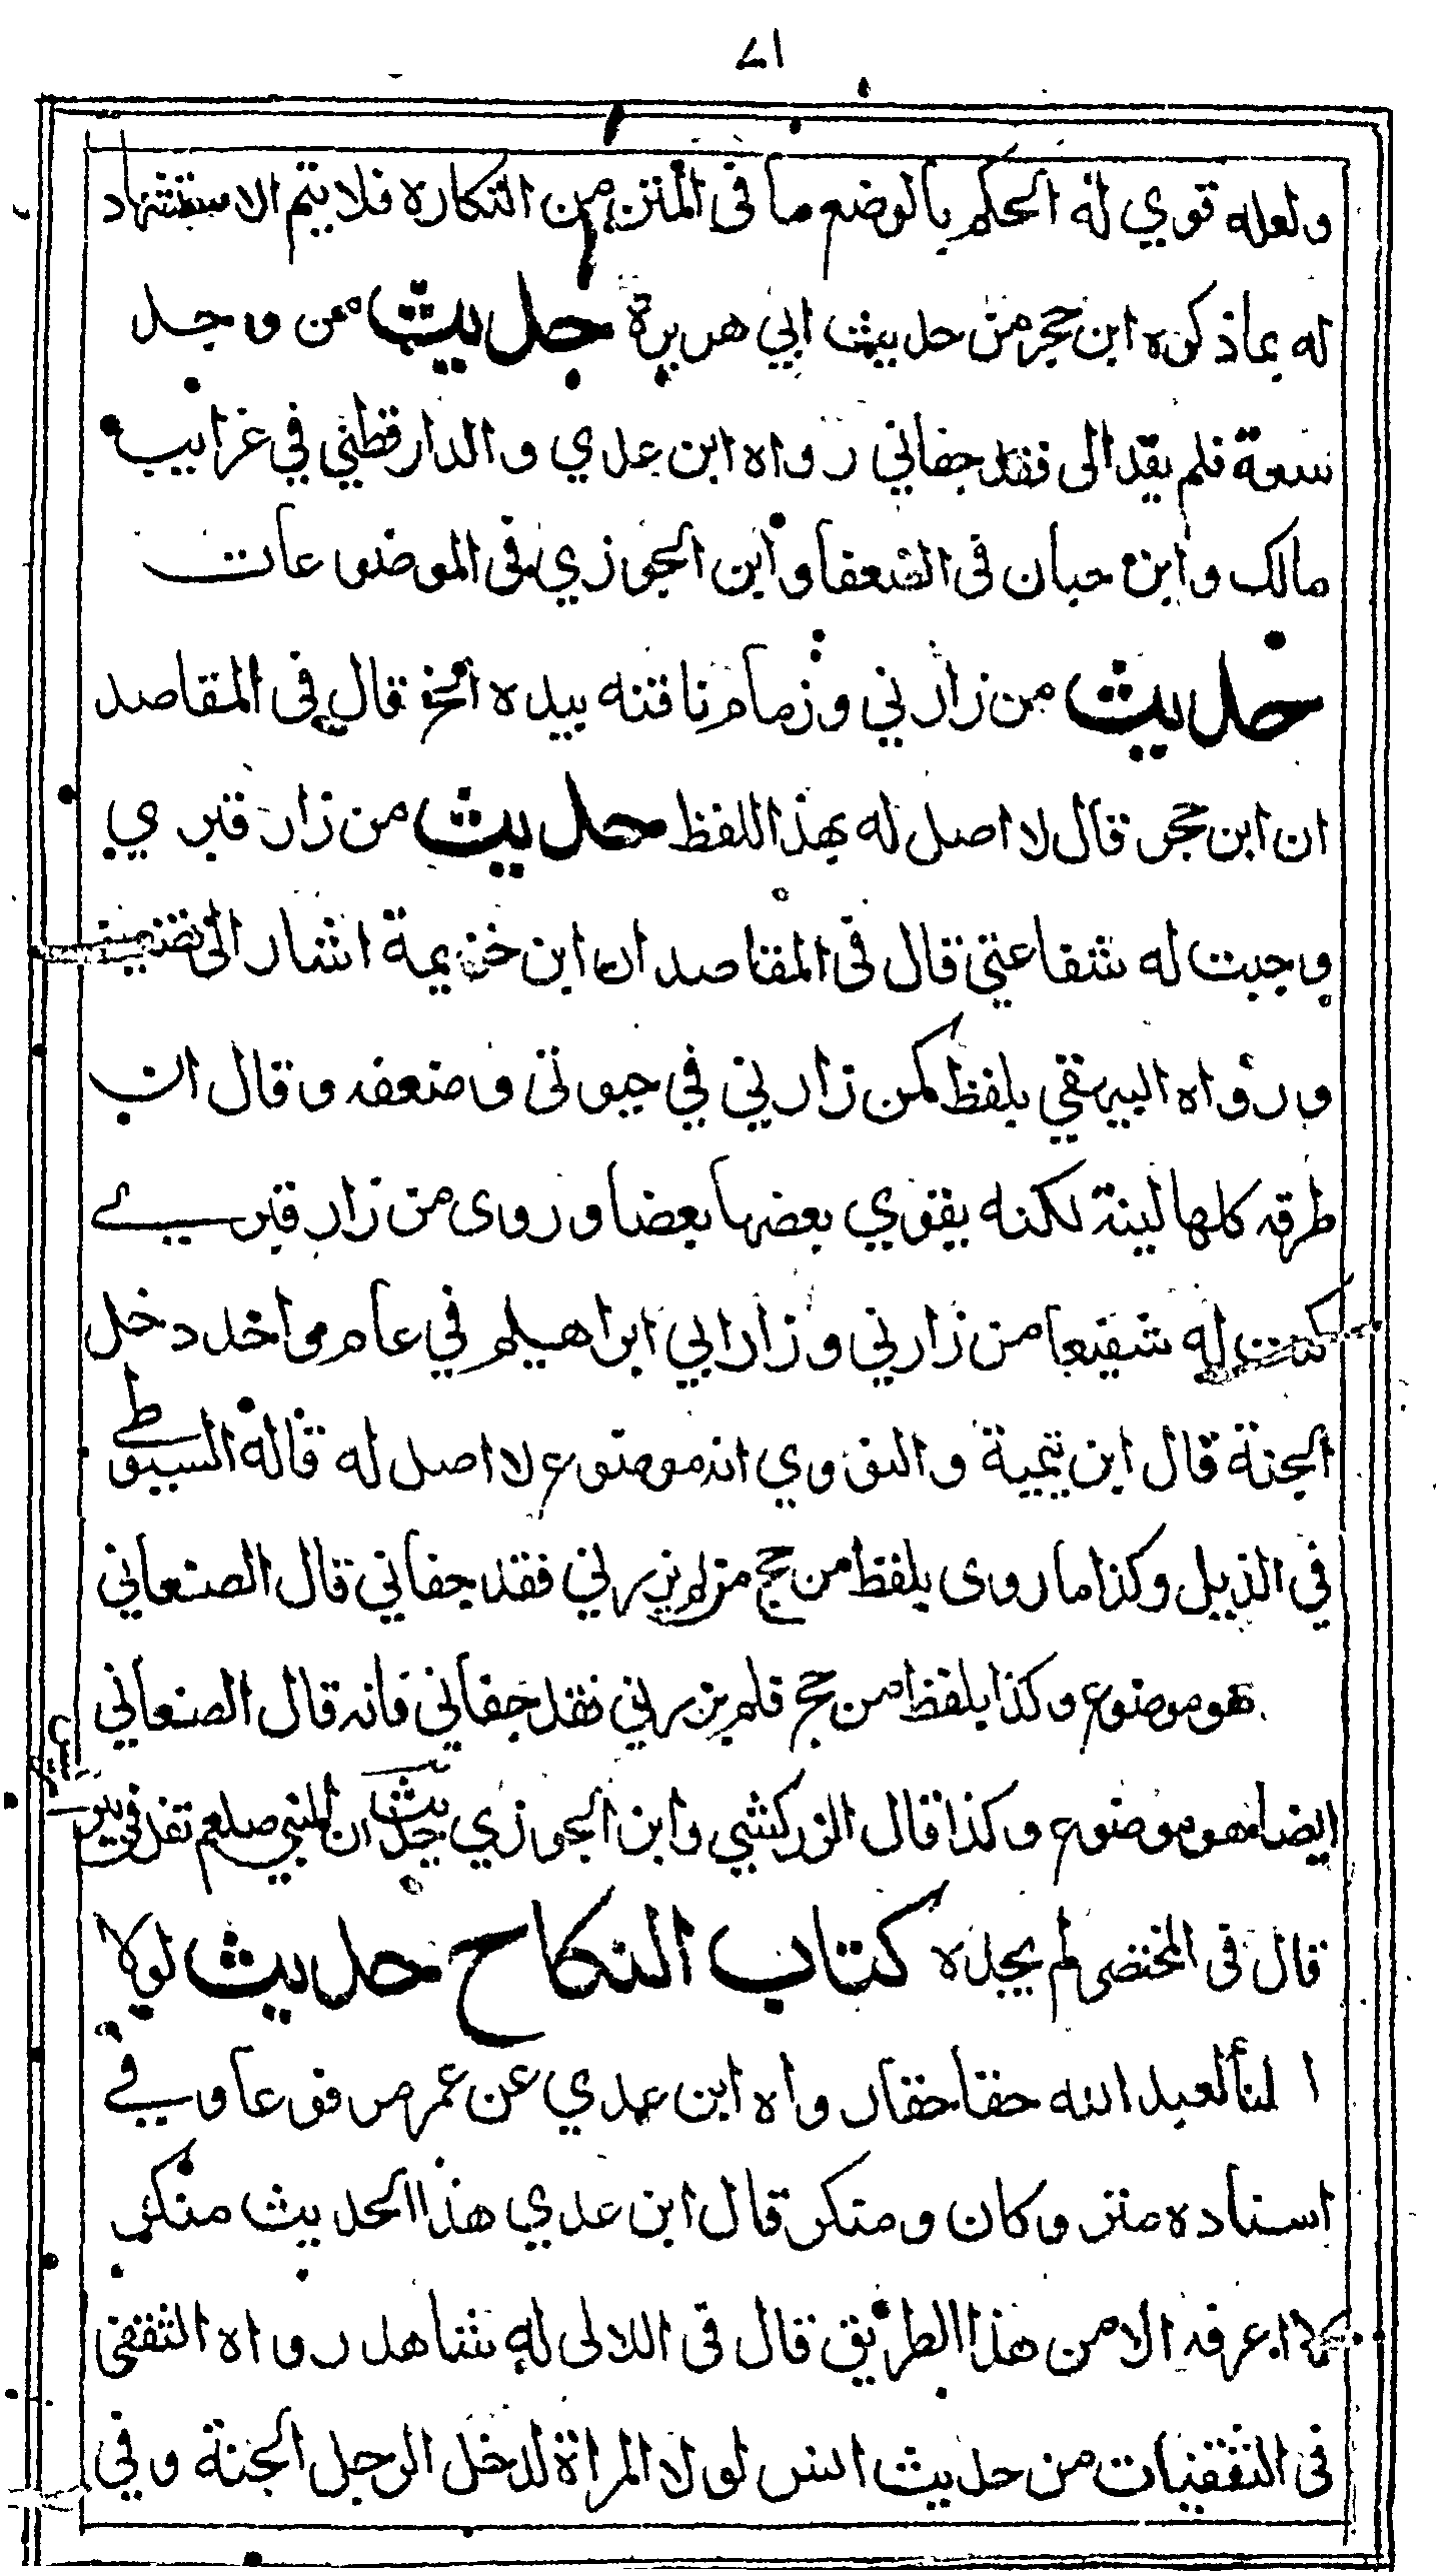 ٨١
ولعله قوي له الحكم بالوضع ما فى المتن من النكارة فلا يتم الاستشهاد
له بما ذكره ابن حجر من حديث ابي هريرة حديث من وجد
سعة فلم يفد الى فقد جفاني رواه ابن عدي والدارقطني في غرايب
مالك وابن حبان فى الضعفا وابن الجوزي فى الموضوعات
حديث من زارني وزمام ناقته بيده الخ قال في المقاصد
ان ابن حجر قال لا اصل له بهذا اللفظ حديث من زار قبري
وجبت له شفاعتي قال فى المقاصد ان ابن خزيمة اشار الى تضعيفه
ورواه البيهقي بلفظ كمن زارني في حيوتى وضعفه وقال ان
طرقه كلها لينة لكنه يقوي بعضها بعضا وروى من زار قبري
كنت له شفيعا من زارني وزار ابي ابراهيم في عام واحد دخل
الجنة قال ابن تيمية والنووي انه موضوع لا اصل له قاله السيوطي
في الذيل وكذا ما روى بلفظ من حج ولم يزرني فقد جفاني قال الصنعاني
هو موضوع وكذا بلفظ من حج فلم يزرني فقد جفاني فانه قال الصنعاني
ايضا هو موضوع وكذا قال الزركشي وابن الجوزي حديث ان النبي صلعم تفل في بير
اريس
قال فى المختصر لم يجده كتاب النكاح حديث لولا
النسا لعبد الله حقا حقا رواه ابن عدي عن عمر مرفوعا وفي
اسناده متروكان ومنكر قال ابن عدي هذا الحديث منكر
لا اعرفه الا من هذا الطريق قال فى اللالى له شاهد رواه الثقفى
فى الثقفيات من حديث انس لولا المراة لدخل الرجل الجنة وفي